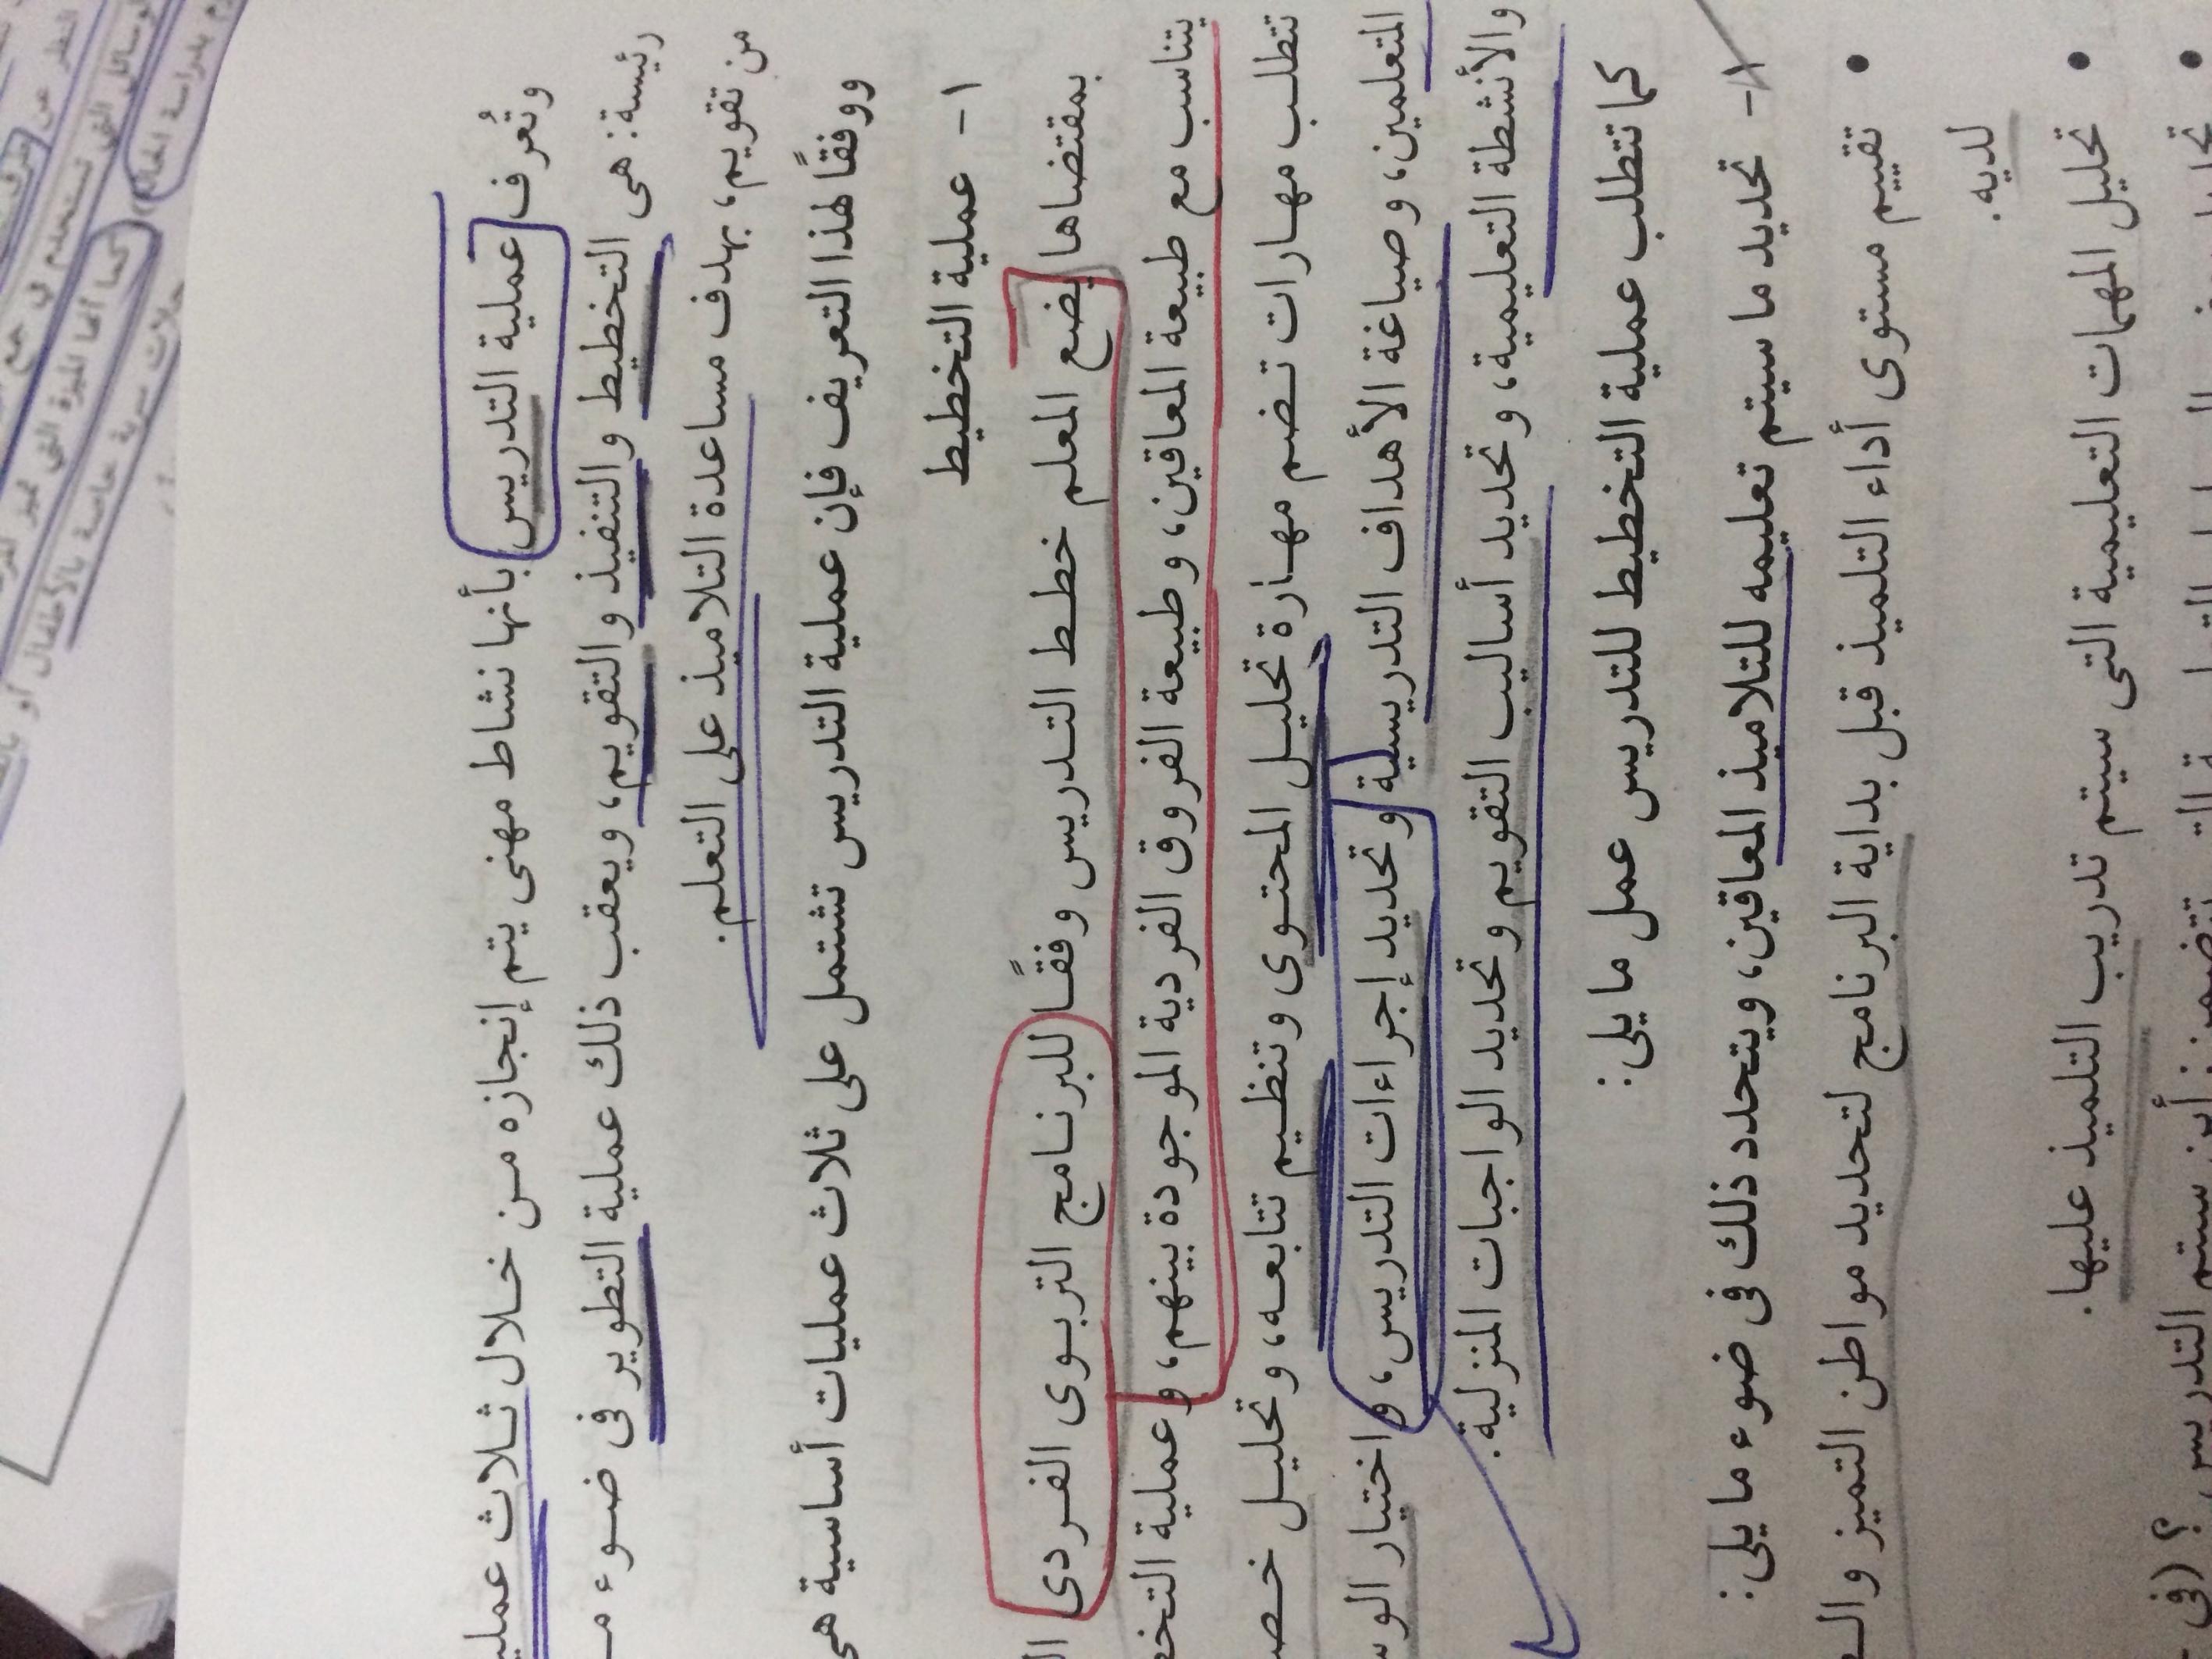 وتُعرف عملية التدريس بأنها نشاط مهنى يتم إنجازه من خلال ثلاث
رئيسة: هى التخطيط والتنفيذ والتقويم، ويعقب ذلك عملية التطوير فى ضوء
من تقويم، بهدف مساعدة التلاميذ على التعلم.
ووفقًا لهذا التعريف فإن عملية التدريس تشتمل على ثلاث عمليات أساسية هى
١- عملية التخطيط
بمقتضاها يضع المعلم خطط التدريس وفقًا للبرنامج التربوى الفردى
يتناسب مع طبيعة المعاقين، وطبيعة الفروق الفردية الموجودة بينهم، وعملية
تتطلب مهارات تضم مهارة تحليل المحتوى وتنظيم تتابعه، وتحليل
المتعلمين، وصياغة الأهداف التدريسية وتحديد إجراءات التدريس، واختيار
والأنشطة التعليمية، وتحديد أساليب التقويم وتحديد الواجبات المنزلية.
كما تتطلب عملية التخطيط للتدريس عمل ما يلى:
١- تحديد ما سيتم تعليمه للتلاميذ المعاقين، ويتحدد ذلك فى ضوء ما يلى:
• تقييم مستوى أداء التلميذ قبل بداية البرنامج لتحديد مواطن التميز
لديه.
• تحليل المهمات التعليمية التى سيتم تدريب التلميذ عليها.
أين ستم التدريس؟ (فى
دراسة الحالة
كما أنها الميزة التى تميز
سرية خاصة بالأطفال أو